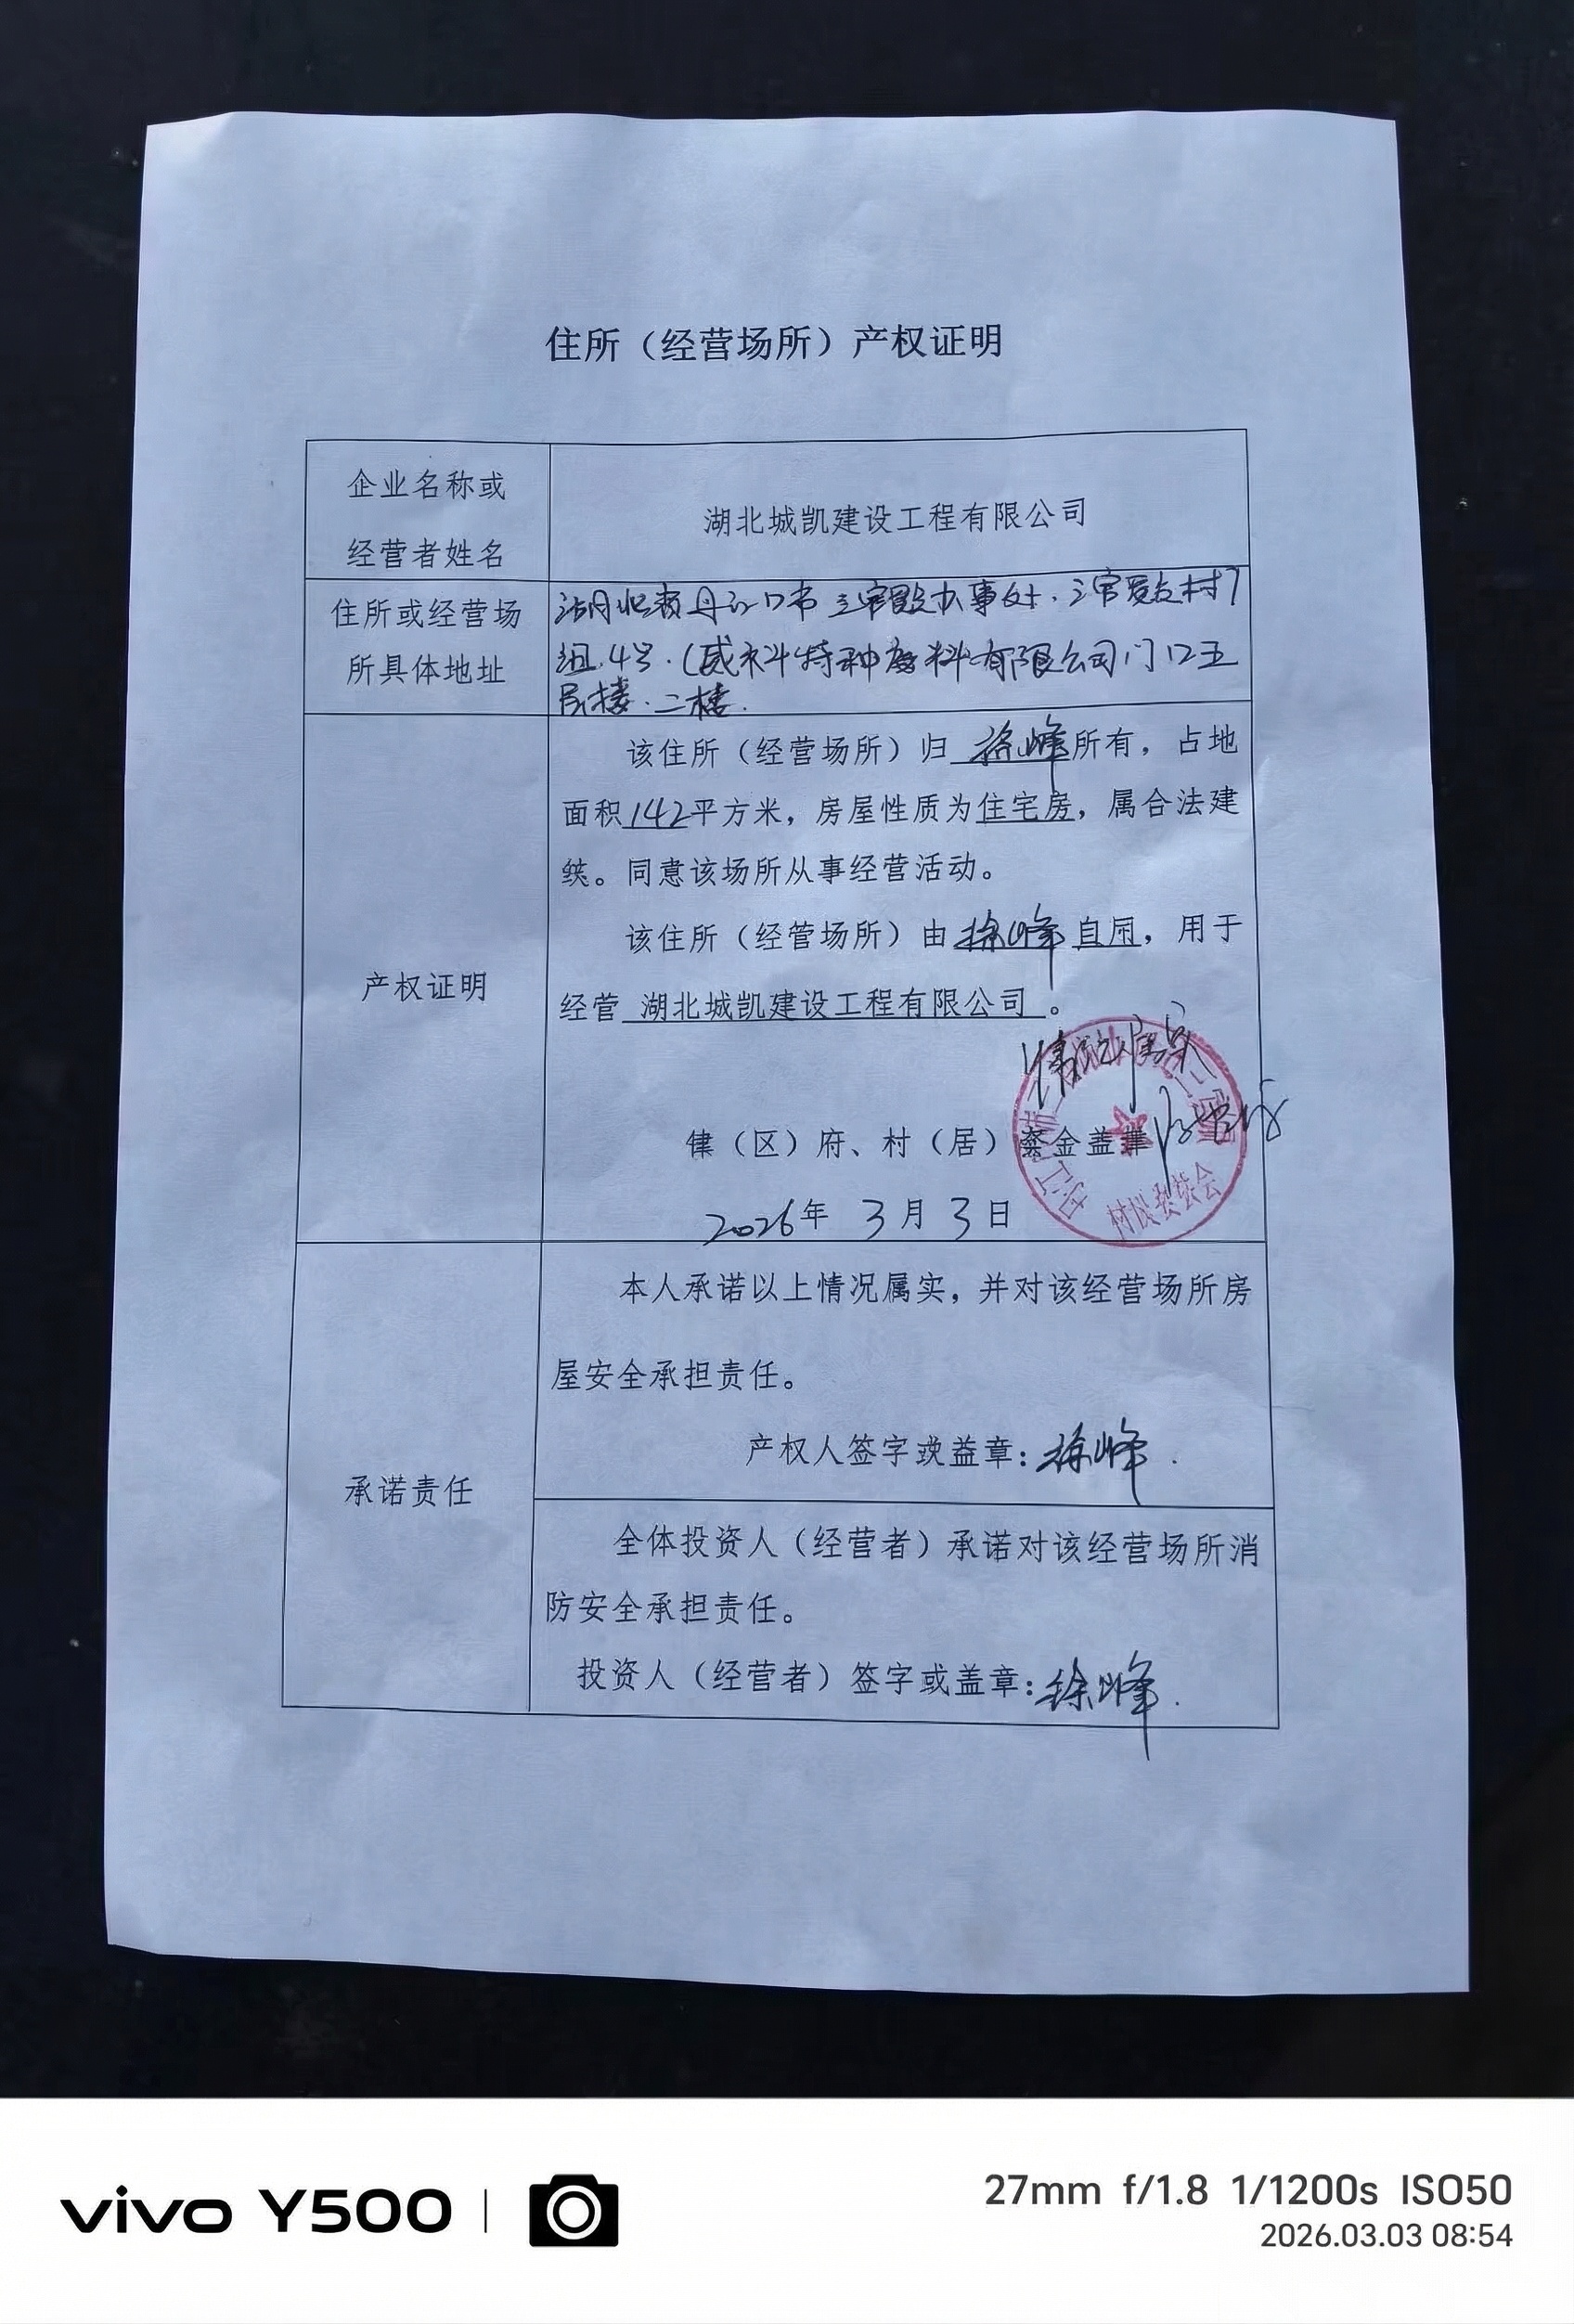 住所（经营场所）产权证明
企业名称或
经营者姓名
湖北城凯建设工程有限公司
住所或经营场
所具体地址
湖北省丹江口市三官殿办事处.三官殿村7
组.4号.(威科特种材料有限公司门口五
民楼.二楼.
产权证明
该住所（经营场所）归 徐峰所有，占地
面积142平方米，房屋性质为住宅房，属合法建
。同意该场所从事经营活动。
该住所（经营场所）由徐峰自用，用于
经营 湖北城凯建设工程有限公司 。
情况属实
（区）府、村（居）盖
村民委员会
2026年 3月 3日
承诺责任
本人承诺以上情况属实，并对该经营场所房
屋安全承担责任。
产权人签字或益章：徐峰.
全体投资人（经营者）承诺对该经营场所消
防安全承担责任。
投资人（经营者）签字或盖章：徐峰.
vivo Y500
27mm f/1.8 1/1200s ISO50
2026.03.03 08:54